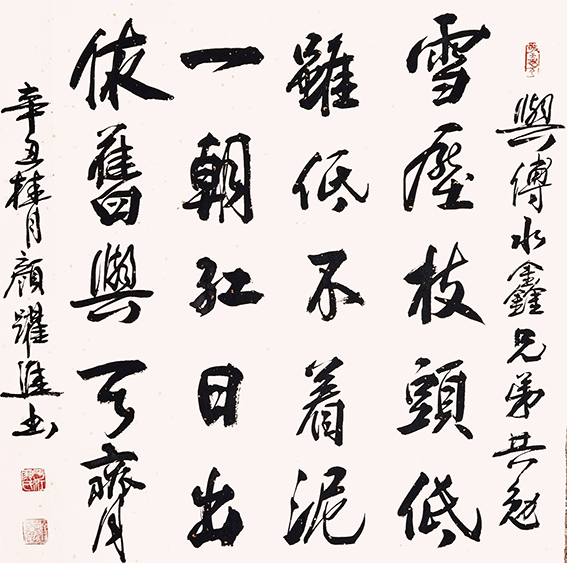 與傅水鑫兄弟共勉
雪壓枝頭低
雖低不着泥
一朝紅日出
依舊與天齊
辛丑桂月顏躍進書